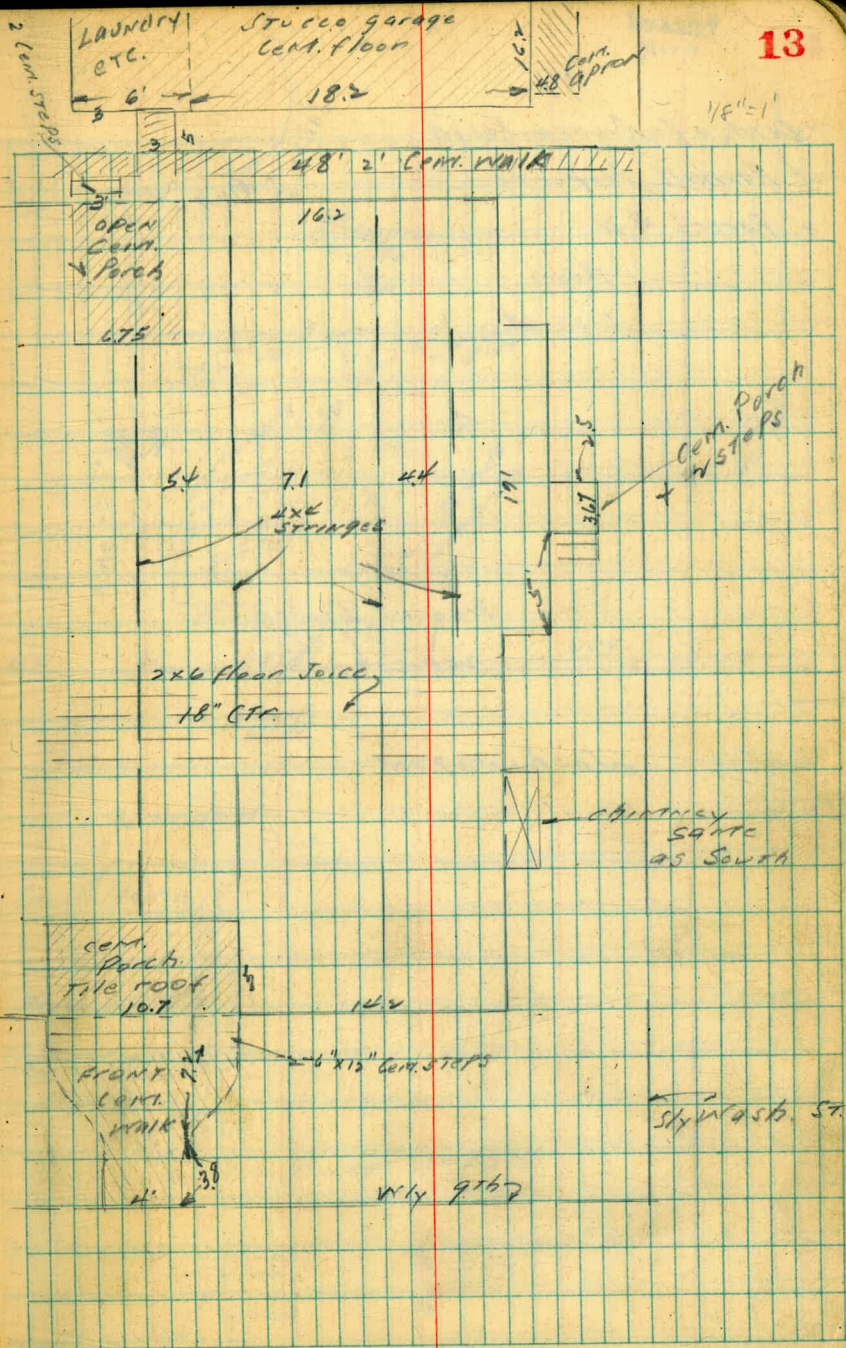 13
1/8" = 1'
2 Cem. Steps
Laundry
etc.
Stucco garage
Cem. floor
16.2
4.8
Cem.
apron
6'
18.2
3
3
5
48' 2' Cem. Walk
3'
16.2
open
Cem.
Porch
6.75
5.4
7.1
4.4
19.1
2.5
3.67
Cem. Porch
2 Steps
4x4
Stringes
5'
2x6 floor Joice
18" Ctr.
chimney
same
as South
cem.
Porch
Tile roof
10.7
5
14.2
2-6"x12" Cem. steps
Front
Cem.
Walk
7.2
3.8
4'
Sly Wash. St.
Wly 9th